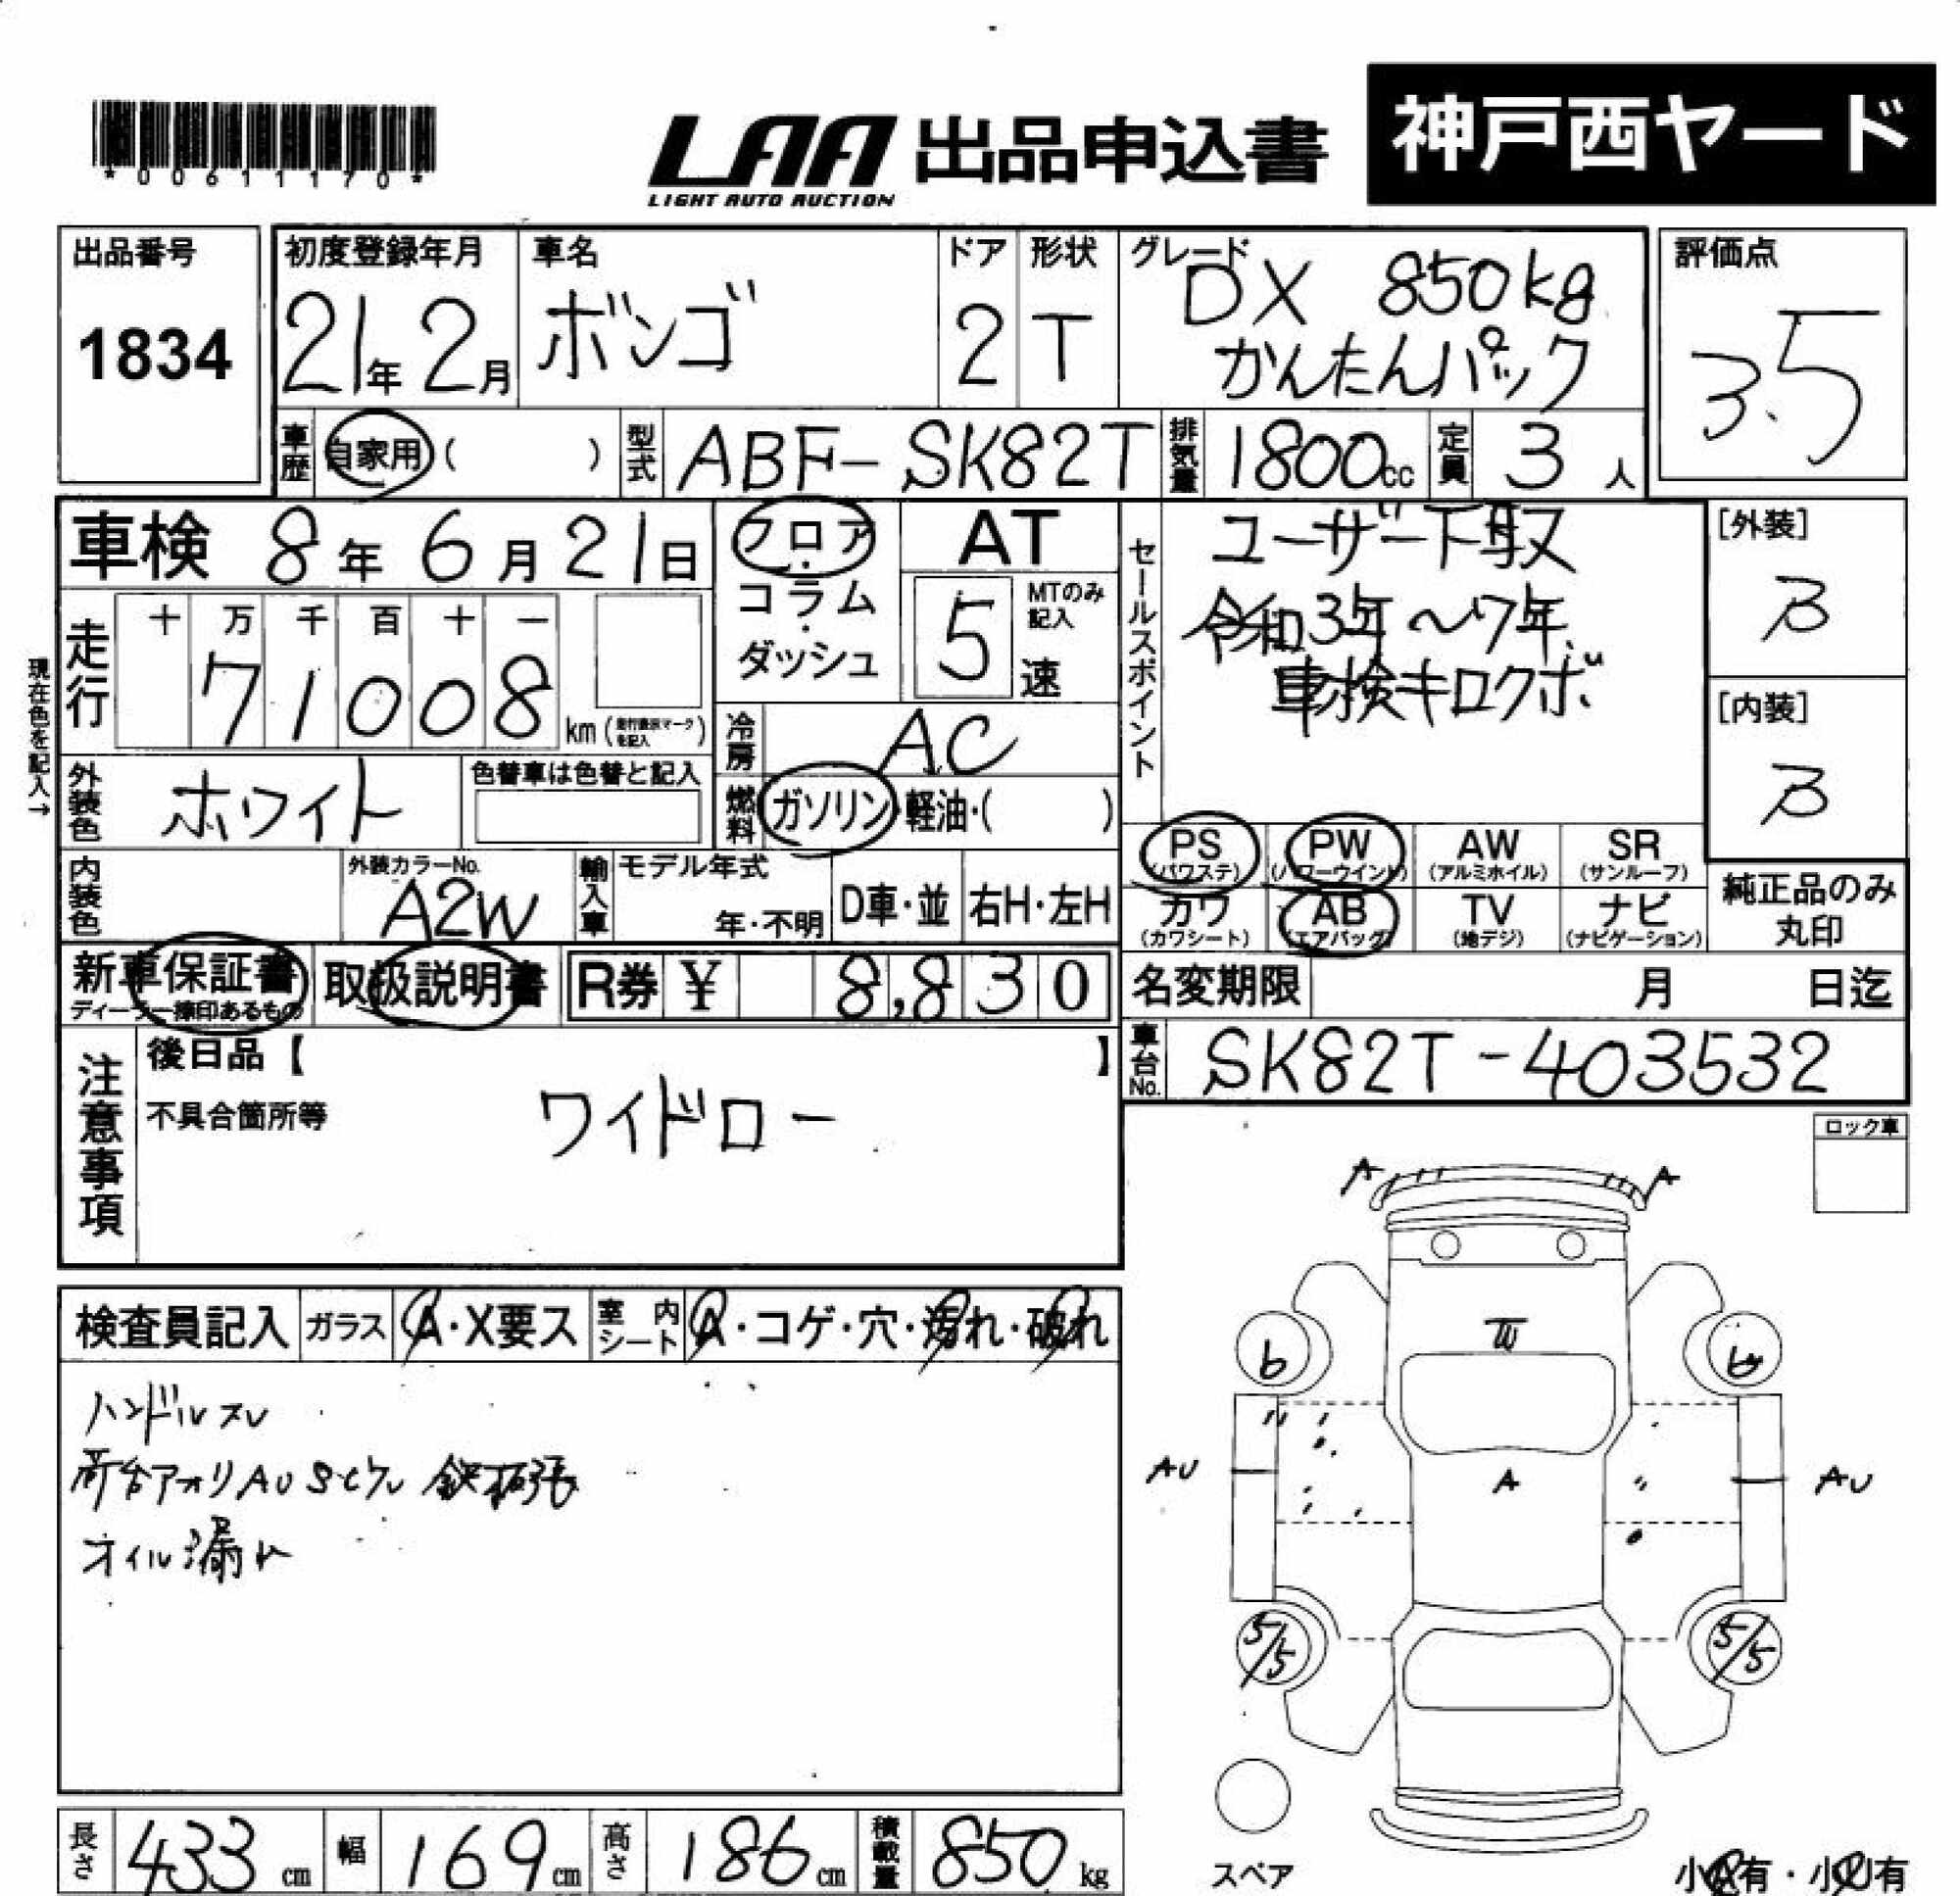 *00611170*
LAA 出品申込書
LIGHT AUTO AUCTION
神戸西ヤード
出品番号
1834
初度登録年月
21年2月
車名
ボンゴ
ドア
2
形状
T
グレード
DX 850kg
かんたんパック
評価点
3.5
車歴
自家用( )
型式
ABF-SK82T
排気量
1800cc
定員
3人
車検 8年6月21日
フロア・コラム・ダッシュ
AT
5速
MTのみ記入
セールスポイント
ユーザー下取
令和3年〜7年
車検キロクボ
[外装]
B
[内装]
B
現在色を記入→
走行
十 万 千 百 十 一
71008
km(走行表示マークを記入)
冷房
AC
燃料
ガソリン・軽油・( )
外装色
ホワイト
色替車は色替と記入
内装色
外装カラーNo.
A2W
輸入車
モデル年式
年・不明
D車・並
右H・左H
PS
(パワステ)
PW
(パワーウインド)
AW
(アルミホイル)
SR
(サンルーフ)
カワ
(カワシート)
AB
(エアバッグ)
TV
(地デジ)
ナビ
(ナビゲーション)
純正品のみ
丸印
新車保証書
ディーラー捺印あるもの
取扱説明書
R券 ¥ 8,830
名変期限 月 日迄
車台No.
SK82T-403532
注意事項
後日品【 】
不具合箇所等
ワイドロー
ロック車
検査員記入
ガラス
A・X要ス
室内シート
A・コゲ・穴・汚れ・破れ
ハンドルスレ
荷台アオリAUSヒケル 鉄板張
オイル漏れ
A A
b b
AU A AU
5/5 5/5
スペア
小A有・小U有
長さ
433cm
幅
169cm
高さ
186cm
積載量
850kg